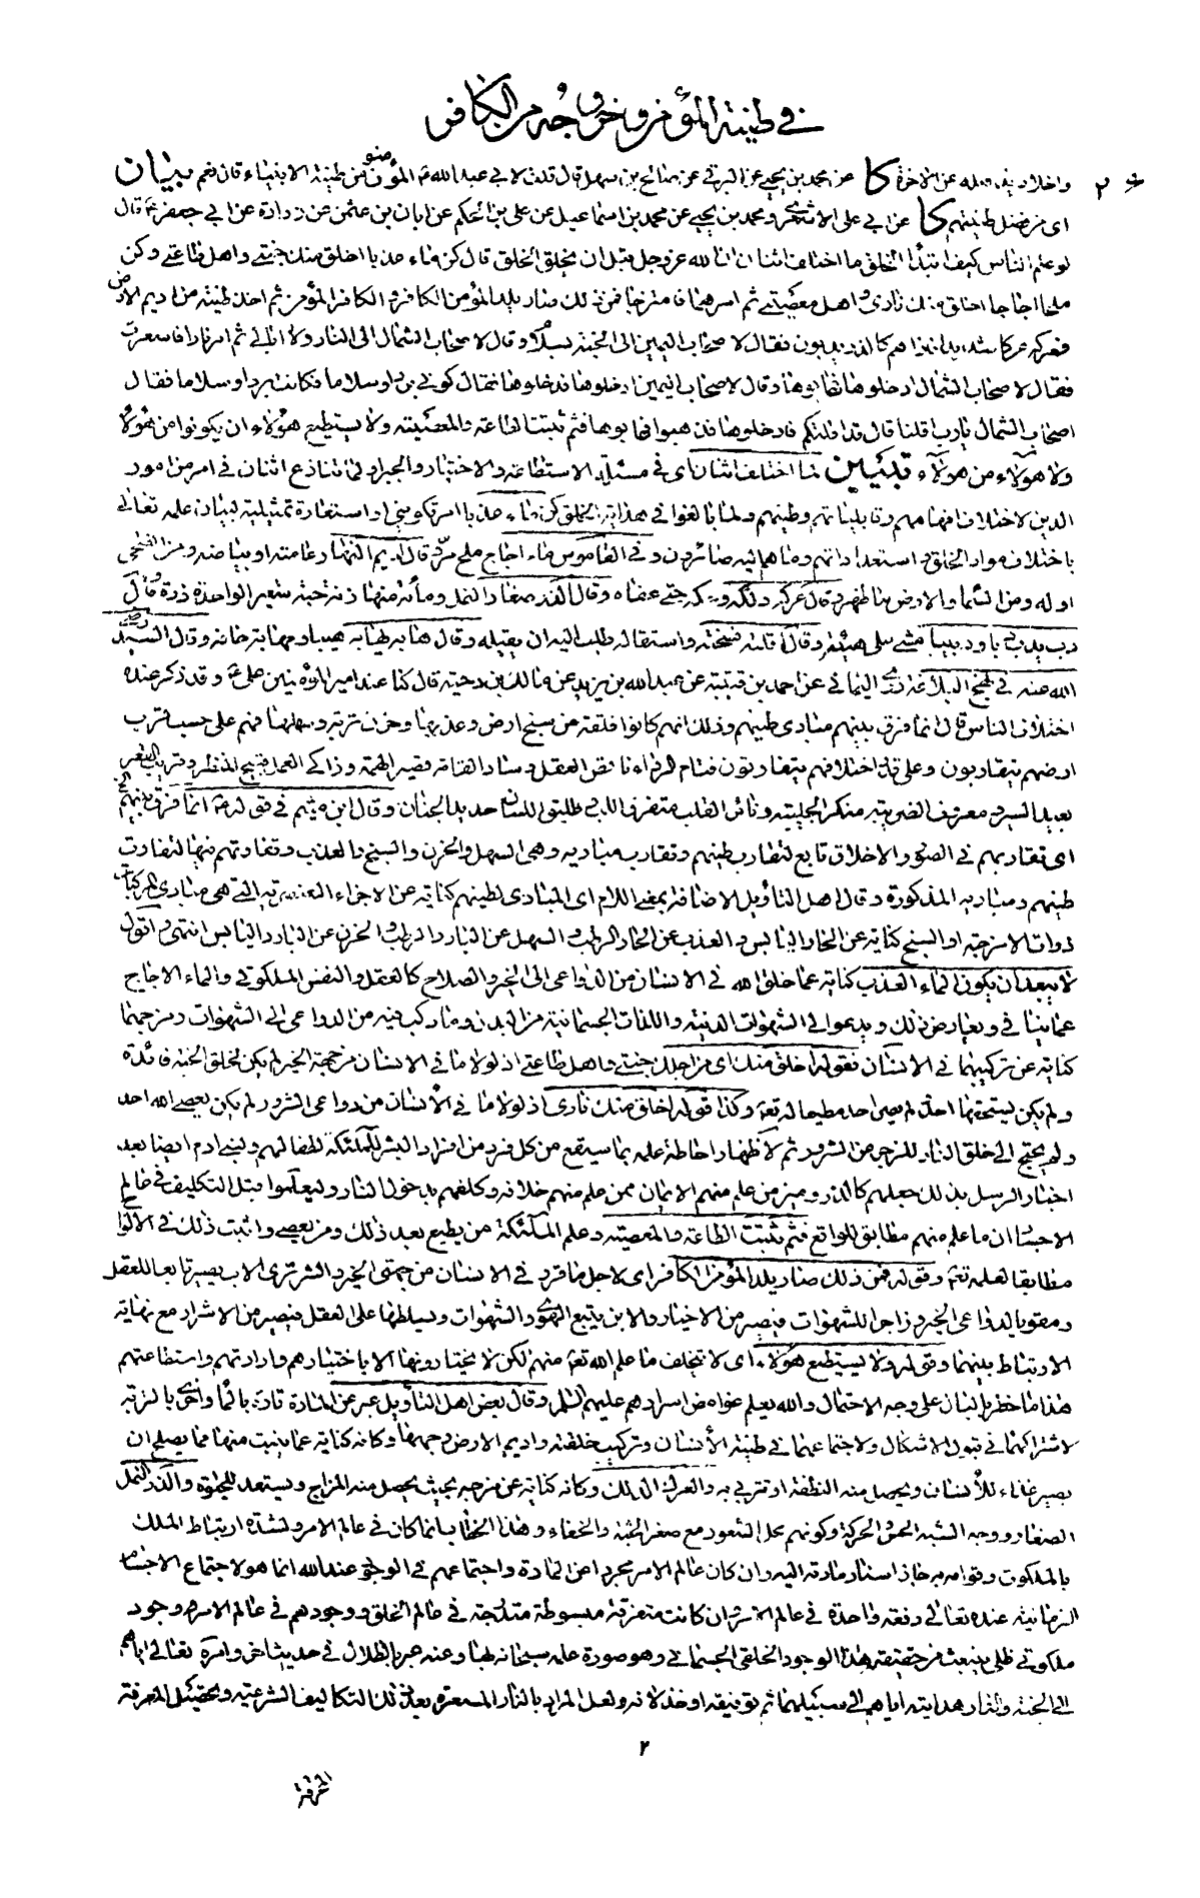 في طينة المؤمن وخروجه من الكافر
واخلاد يف عن الآخرة كا عن محمد بن يحيى عن البرقي عن صالح بن سهل قال قلت لابي عبد الله ع المؤمنون من طينة الانبياء قال نعم بيان
اي من فضل طينتهم كا عن ابي علي الاشعري ومحمد بن يحيى عن محمد بن اسماعيل عن علي بن الحكم عن ابان بن عثمن عن زرارة عن ابي جعفر ع قال
لو علم الناس كيف ابتداء الخلق ما اختلف اثنان ان الله عز وجل قبل ان يخلق الخلق قال كن ماء عذبا اخلق منك جنتي واهل طاعتي وكن
ملحا اجاجا اخلق منك ناري واهل معصيتي ثم امرهما فامتزجا فمن ذلك صار يلد المؤمن الكافر والكافر المؤمن ثم اخذ طينة من اديم الارض
فعركه عركا شديدا فاذا هم كالذر يدبون فقال لاصحاب اليمين الى الجنة بسلام وقال لاصحاب الشمال الى النار ولا ابالي ثم امر نارا فاسعرت
فقال لاصحاب الشمال ادخلوها فهابوها وقال لاصحاب اليمين ادخلوها فدخلوها فقال كوني بردا وسلاما فكانت بردا وسلاما فقال
اصحاب الشمال يا رب اقلنا قال قد اقلتكم فادخلوها فذهبوا فهابوها فثم ثبتت الطاعة والمعصية ولا يستطيع هؤلاء ان يكونوا من هؤلاء
ولا هؤلاء من هؤلاء تبيين لما اختلف اثنان اي في مسئلة الاستطاعة والاختيار والجبر او لما تنازع اثنان في امر من امور
الدين لاختلاف افهامهم وقابلياتهم وطينهم ولما بالغوا في هداية الخلق كن ماء عذبا امر تكويني او استعارة تمثيلية لبيان علمه تعالى
باختلاف مواد الخلق واستعداداتهم وما هم اليه صائرون وفي القاموس ماء اجاج ملح مر وقال اديم النهار عامته او بياضه ومن الضحى
اوله ومن السماء والارض ما ظهر وقال عركه دلكه وحكه حتى عفاه وقال الذر صغار النمل ومائة منها زنة حبة شعير الواحدة ذرة وقال
دب يدب دبا ودبيبا مشى على هينته وقال اقلته فسخته واستقاله طلب اليه ان يقيله وقال هابه يهابه هيبا ومهابة خافه وقال السيد رضي
الله عنه في نهج البلاغة روى اليماني عن احمد بن قتيبة عن عبد الله بن يزيد عن مالك بن دحية قال كنا عند امير المؤمنين علي ع وقد ذكر عنده
اختلاف الناس قال انما فرق بينهم مبادي طينهم وذلك انهم كانوا فلقة من سبخ ارض وعذبها وحزن تربة وسهلها فهم على حسب قرب
ارضهم يتقاربون وعلى قدر اختلافهم يتفاوتون فتام الرواء ناقص العقل وماد القامة قصير الهمة وزاكي العمل قبيح المنظر وقريب القعر
بعيد السبر ومعروف الضريبة منكر الجليبة وتائه القلب متفرق اللب وطليق اللسان حديد الجنان وقال ابن ميثم في قوله ع انما فرق بينهم الخ
اي تقاربهم في الصور والاخلاق تابع لتقارب طينهم وتقارب مباديه وهي السهل والحزن والسبخ والعذب وتفاوتهم فيها لتفاوت
طينهم ومباديه المذكورة وقال اهل التاويل الاضافة بمعنى اللام اي المبادي لطينهم كناية عن الاجزاء العنصرية التي هي مبادي المركبات
ذوات الامزجة او السبخ كناية عن الحار اليابس والعذب عن الحار الرطب والسهل عن البارد الرطب والحزن عن البارد اليابس انتهى واقول
لا يبعد ان يكون الماء العذب كناية عما خلق الله في الانسان من الدواعي الى الخير والصلاح كالعقل والنفس الملكوتي والماء الاجاج
عما ينافي ويعارض ذلك ويدعو الى الشهوات الدنية واللذات الجسمانية من البدن وما ركب فيه من الدواعي الى الشهوات ومزجهما
كناية عن تركيبهما في الانسان فقوله اخلق منك اي من اجلك جنتي واهل طاعتي اذ لولا ما في الانسان من جهة الخير لم يكن لخلق الجنة فائدة
ولم يكن يستحقها احد ولم يصر احد مطيعا له تعالى وكذا قوله اخلق منك ناري اذ لولا ما في الانسان من دواعي الشرور لم يكن يعصي الله احد
ولم يحتج الى خلق النار للزجر عن الشرور ثم لاظهار احاطة علمه بما سيقع من كل فرد من افراد البشر للملئكة لطفا لهم ولبني ادم ايضا بعد
اخبار الرسل بذلك جعلهم كالذر وميز من علم منهم الايمان ممن علم منهم خلافه وكلفهم بدخول النار وليعلموا قبل التكليف في عالم
الاجسام ان ما علم منهم مطابق للواقع فثم ثبتت الطاعة والمعصية وعلم الملئكة من يطيع بعد ذلك ومن يعصي واثبت ذلك في الالواح
مطابقا لعلمه تعالى وقوله فمن ذلك صار يلد المؤمن الكافر اي لاجل ما قرر في الانسان من جهتي الخير والشر ترى الاب يصير تابعا للعقل
ومقويا لدواعي الخير وزاجرا للشهوات فيصير من الاخيار والابن يتبع الهوى والشهوات ويسلطها على العقل فيصير من الاشرار مع نهاية
الارتباط بينهما وقوله ولا يستطيع هؤلاء اي لا يتخلف ما علم الله تعالى منهم لكن لا يختارونها الا باختيارهم وارادتهم واستطاعتهم
هذا ما خطر بالبال على وجه الاحتمال والله يعلم غوامض اسرارهم عليهم السلام وقال بعض اهل التاويل عبر عن المادة تارة بالماء واخرى بالتربة
لاشتراكهما في قبول الاشكال ولاجتماعهما في طينة الانسان وتركيب خلقته واديم الارض وجهها وكانه كناية عما ينبت منها مما يصلح ان
يصير غذاء للانسان ويحصل منه النطفة او تتربى به والعرك الدلك وكانه كناية عن مزجه بحيث يحصل منه المزاج ويستعد للحيوة والذر النمل
الصغار ووجه الشبه الحس والحركة وكونهم محل الشعور مع صغر الجثة والخفاء وهذا الخطاب انما كان في عالم الامر ولشدة ارتباط الملك
بالملكوت وقوامه به جاز اسناد مادته اليه وان كان عالم الامر مجردا عن المادة واجتماعهم في الوجود عند الله انما هو لاجتماع الاجسام
الزمانية عنده تعالى دفعة واحدة في عالم الامر وان كانت متفرقة مبسوطة متدرجة في عالم الخلق ووجودهم في عالم الامر وجود
ملكوتي ظلي ينبعث من حقيقته هذا الوجود الخلقي الجسماني وهو صورة علمه سبحانه بها وعنه عبر بالظلال في حديث اخر وامره تعالى اياهم
الى الجنة والنار هدايته اياهم الى سبيلهما ثم توفيقه او خذلانه ولعل المراد بالنار المسعرة بعد ذلك التكاليف الشرعية وتحصيل المعرفة
٢
المعرفة